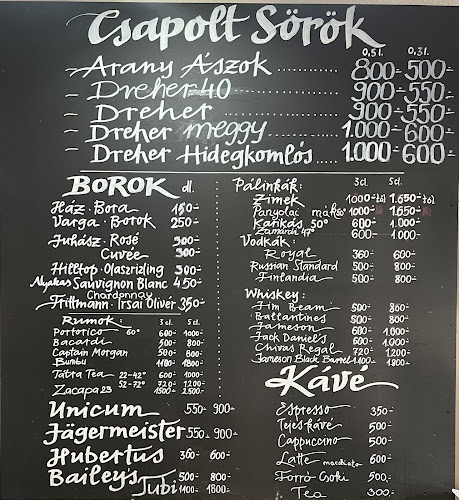 Csapolt Sörök
0,5l. 0,3l.
- Arany Ászok ........ 800- 500-
- Dreher 40 ........ 900- 550-
- Dreher ........ 900- 550-
- Dreher meggy ........ 1.000- 600-
- Dreher Hidegkomlós .... 1.000- 600-
BOROK dl.
Ház Bora 150-
Varga Borok 250-
Juhász Rosé 300-
Cuvée 300-
Hilltop Olaszrizling 300-
Nyakas Sauvignon Blanc 450-
Chardonnay
Frittmann Irsai Olivér 350-
Rumok: 3cl. 5cl.
Portorico 60° 600- 1000-
Bacardi 500- 800-
Captain Morgan 500- 800-
Bumbu 1100- 1800-
Tátra Tea 22-42° 600- 1000-
52-72° 720- 1.200-
Zacapa 23 1500- 2.500-
Unicum 550- 900-
Jägermeister 550- 900-
Hubertus 360- 600-
Bailey's 500- 800-
Jubi 1100- 1800-
Pálinkák: 3cl. 5cl.
Zimek 1000- 1.650-
Panyolai 1000- 1.650-
50° 600- 1.000-
Zamárdi 47° 600- 1.000-
Vodkák:
Royal 360- 600-
Russian Standard 500- 800-
Finlandia 500- 800-
Whiskey:
Jim Beam 500- 800-
Ballantines 500- 800-
Jameson 600- 1.000-
Jack Daniel's 600- 1.000-
Chivas Regal 720- 1.200-
Jameson Black Barrel 1100- 1800-
Kávé
Espresso 350-
Tejeskávé 500-
Cappuccino 500-
Latte macchiato 600-
Forró Csoki 500-
Tea 300-